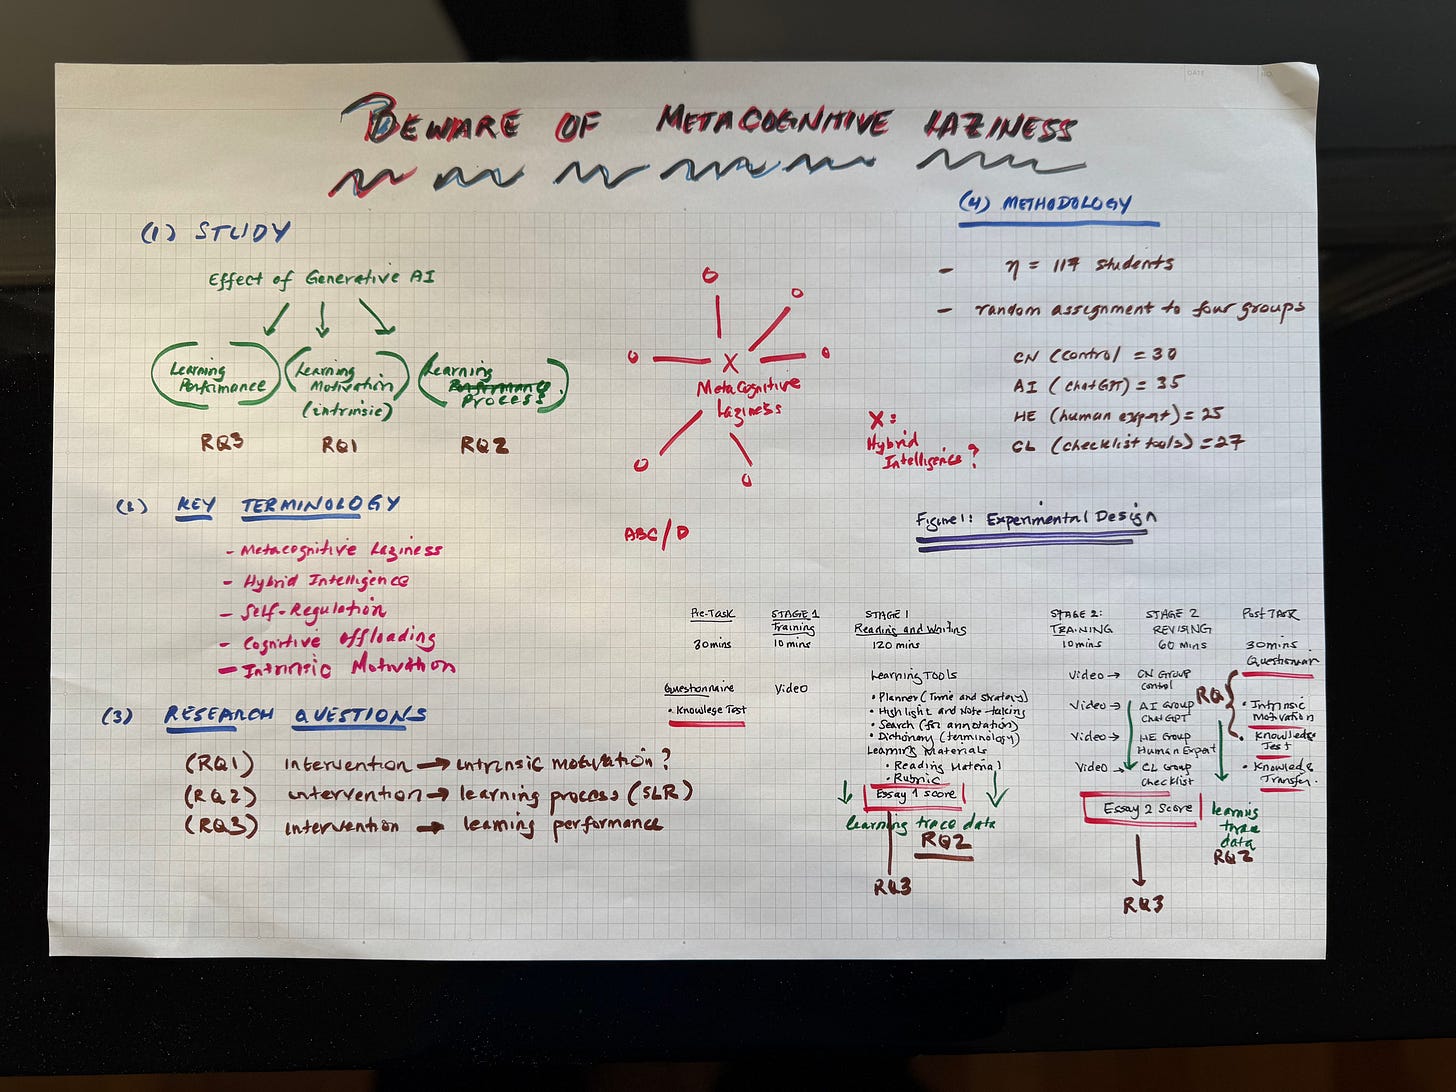 BEWARE OF METACOGNITIVE LAZINESS
(1) STUDY
Effect of Generative AI
Learning Performance
Learning Motivation (intrinsic)
Learning Process
RQ3 RQ1 RQ2
(2) KEY TERMINOLOGY
- Metacognitive Laziness
- Hybrid Intelligence
- Self-Regulation
- Cognitive offloading
- Intrinsic Motivation
(3) RESEARCH QUESTIONS
(RQ1) intervention → intrinsic motivation?
(RQ2) intervention → learning process (SLR)
(RQ3) intervention → learning performance
X
Metacognitive
Laziness
X =
Hybrid
Intelligence?
ABC/D
(4) METHODOLOGY
- η = 117 students
- random assignment to four groups
CN (control = 30
AI (chatGPT) = 35
HE (human expert) = 25
CL (checklist tools) = 27
Figure 1: Experimental Design
Pre-Task
30mins
Questionnaire
• Knowlege Test
STAGE 1
Training
10 mins
Video
STAGE 1
Reading and Writing
120 mins
Learning Tools
• Planner (Time and strategy)
• Highlight and Note-taking
• Search (for annotation)
• Dictionary (terminology)
Learning Materials
• Reading Material
• Rubric
Essay 1 score
learning trace data
RQ2
RQ3
STAGE 2:
TRAINING
10 mins
STAGE 2
REVISING
60 MINS
Video → CN GROUP
control
Video → AI Group
ChatGPT
Video → HE Group
Human Expert
Video → CL Group
checklist
Essay 2 Score
RQ3
learning
trace
data
RQ2
POST TASK
30mins
RQ
• Intrinsic
Motivation
• Knowledge
Test
Transfer.